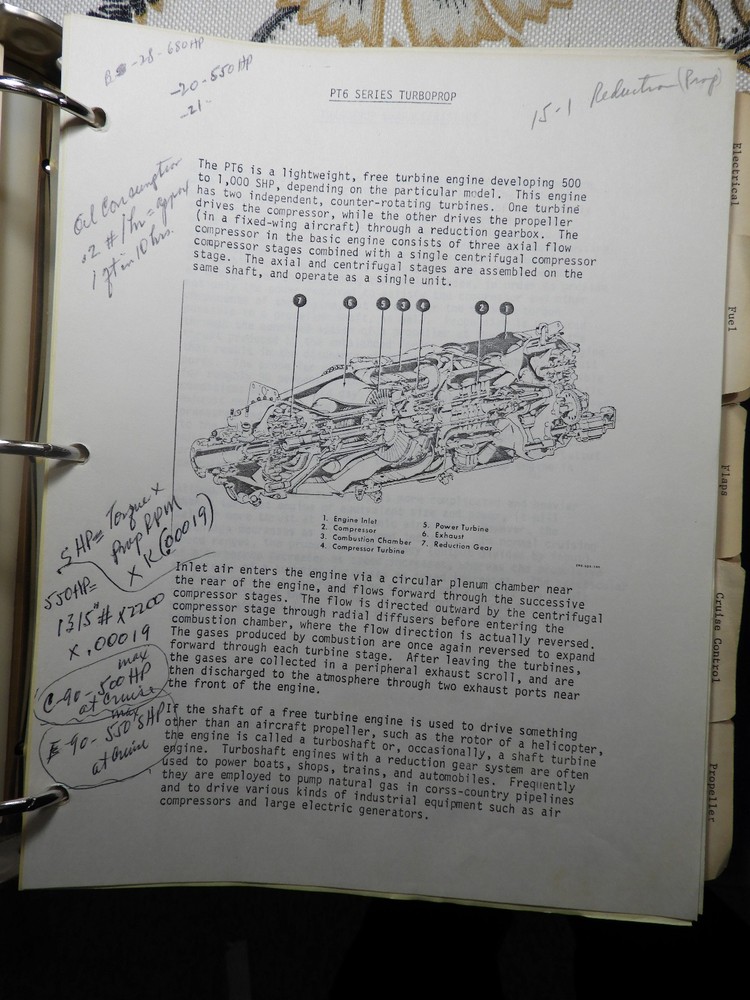 -28-680HP
-20-550HP
-21
PT6 SERIES TURBOPROP
15-1 Reduction (Prop)
Oil Consumption
.2 #/hr = approx
1 qt in 10 hrs.
The PT6 is a lightweight, free turbine engine developing 500
to 1,000 SHP, depending on the particular model. This engine
has two independent, counter-rotating turbines. One turbine
drives the compressor, while the other drives the propeller
(in a fixed-wing aircraft) through a reduction gearbox. The
compressor in the basic engine consists of three axial flow
compressor stages combined with a single centrifugal compressor
stage. The axial and centrifugal stages are assembled on the
same shaft, and operate as a single unit.
7 6 5 3 4 2 1
1. Engine Inlet
2. Compressor
3. Combustion Chamber
4. Compressor Turbine
5. Power Turbine
6. Exhaust
7. Reduction Gear
SHP= Torque x
Prop RPM
x K(.00019)
550HP=
1315"# x 2200
x .00019
C-90-500HP
max
at Cruise
E-90-550SHP
max
at Cruise
Inlet air enters the engine via a circular plenum chamber near
the rear of the engine, and flows forward through the successive
compressor stages. The flow is directed outward by the centrifugal
compressor stage through radial diffusers before entering the
combustion chamber, where the flow direction is actually reversed.
The gases produced by combustion are once again reversed to expand
forward through each turbine stage. After leaving the turbines,
the gases are collected in a peripheral exhaust scroll, and are
then discharged to the atmosphere through two exhaust ports near
the front of the engine.
If the shaft of a free turbine engine is used to drive something
other than an aircraft propeller, such as the rotor of a helicopter,
the engine is called a turboshaft or, occasionally, a shaft turbine
engine. Turboshaft engines with a reduction gear system are often
used to power boats, shops, trains, and automobiles. Frequently
they are employed to pump natural gas in corss-country pipelines
and to drive various kinds of industrial equipment such as air
compressors and large electric generators.
Electrical
Fuel
Flaps
Cruise Control
Propeller